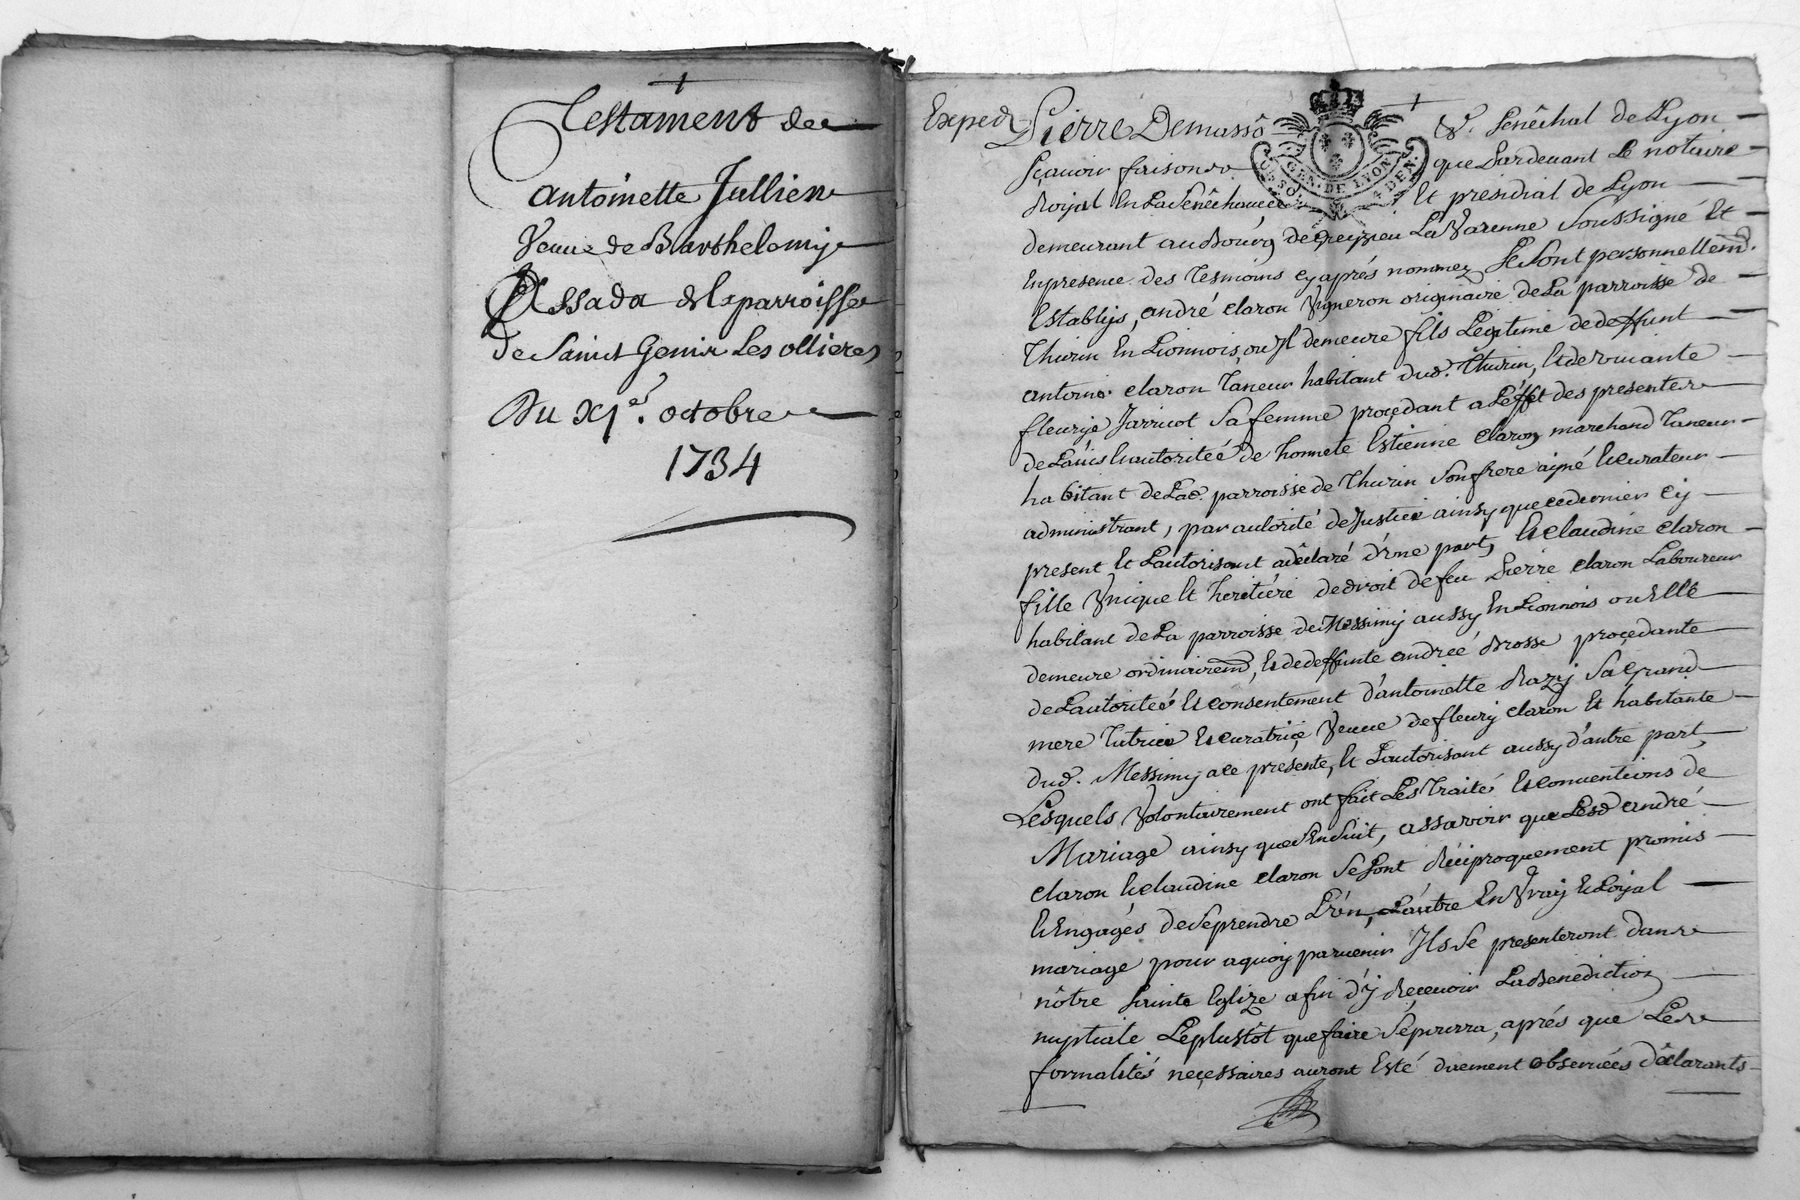 Testament de
antoinette Jullien
Veuue de Barthelemy
Assada de la parroisse
de Saint Genis Les ollieres
Du XIe. octobre
1734
Exped
Pierre Demasso Senêchal de Lyon
Sçauoir faisons que Pardeuant Le notaire
Royal En La Senêchaucée Et presidial de Lyon
GEN. DE LYON
demeurant au Bourg de Greyzieu La Varenne Soussigné Et
En presence des Tesmoins cy aprés nommez Se Sont personnellemt.
Establys, andré claron Vigneron originaire de La parroisse de
Thurin En Lionnois, ou Jl demeure fils Legitime de deffunt
antoine claron Taneur habitant dud. Thurin, Et de viuante
fleurye Jarricot Sa femme proçedant a L'éffet des presentes
de L'auis & autoritéé de honnete Estienne Claron marchand Taneur
habitant de Lad. parroisse de Thurin Son frere aisné & curateur
administrant, par autorité de Justice ainsy que ce dernier cy
present Et L'autorisant a dêclaré d'úne part, & claudine claron
fille Vnique Et heritiére de droit de feu Pierre claron Laboureur
habitant de La parroisse de Messimy aussy En Lionnois ou Elle
demeure ordinairemt, & de deffunte andréé Brosse proçedante
de L'autoritéé & consentement d'antoinette Razy Sa Grand
mere Tutrice & curatriçe Veuue de fleury claron Et habitante
dud. Messimy a ce presente, & L'autorisant aussy d'autre part,
Lesquels Volontairement ont fait Les Traité & conuentions de
Mariage ainsy que S'En Suit, assavoir que Lesd andré
claron & claudine claron Se Sont Réciproquement promis
& Engagés de Se prendre L'ún, L'aútre En Vray & Loyal
mariage pour a quoy paruenir Jls Se presenteront dans
nôtre Sainte Eglize afin d'y Reçeuoir La Benediction
nuptiale Le plustôt que faire Se pourra, aprés que Les
formalités neçessaires auront Esté duement obseruées Déclarants